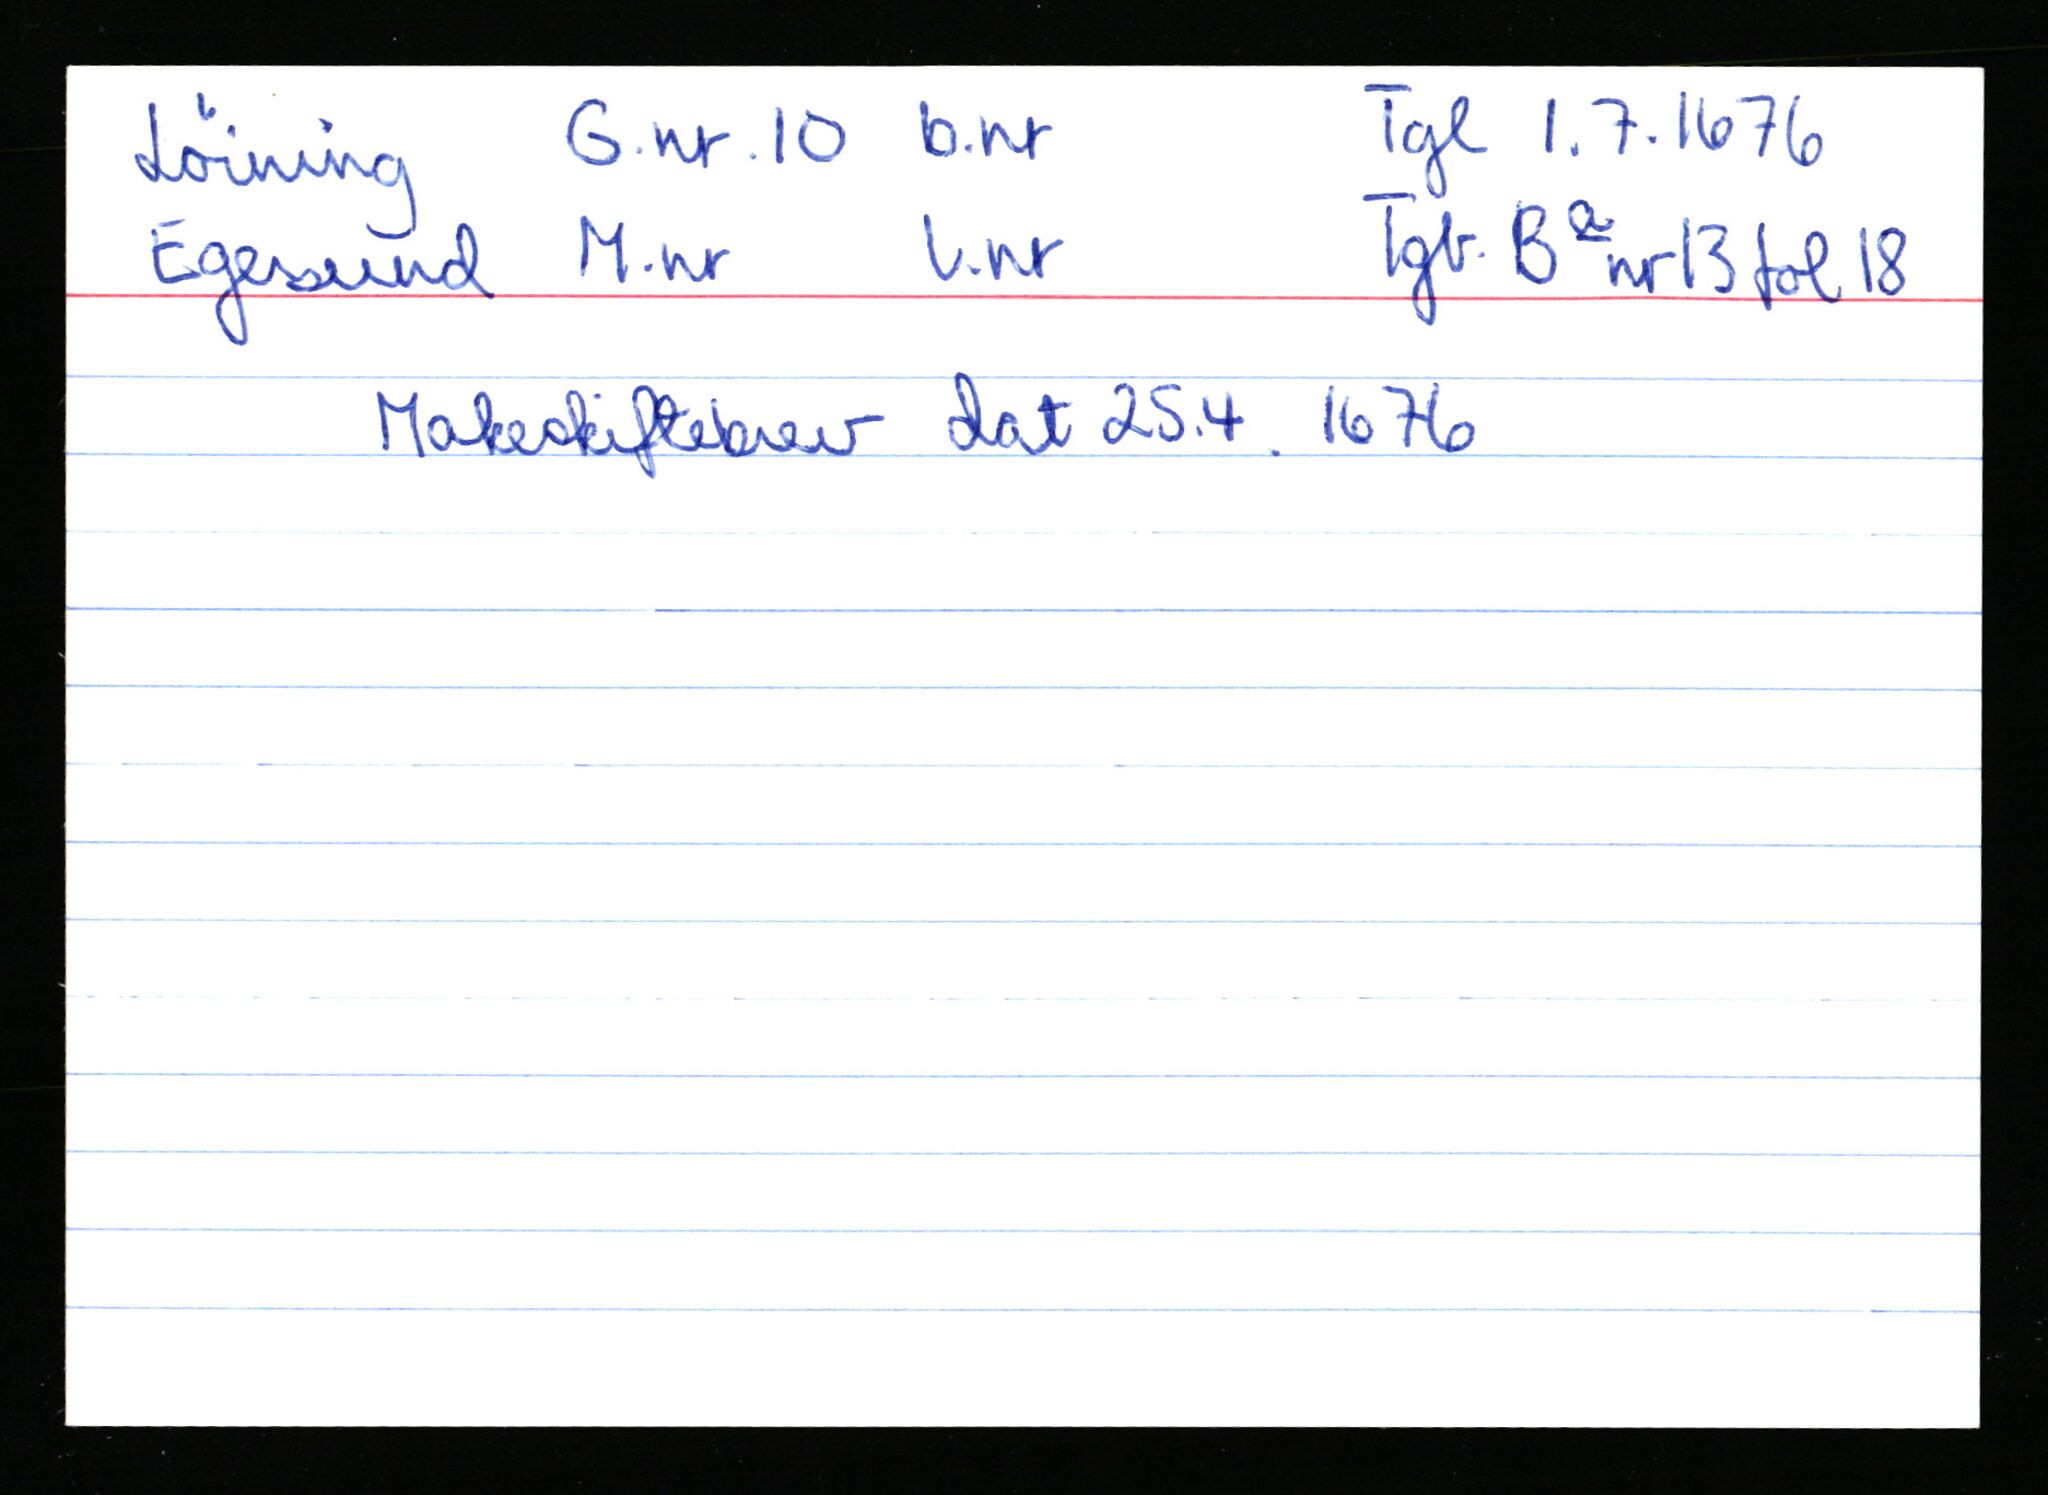 Löining G.nr.10 b.nr Tgl 1.7.1676
Egersund M.nr l.nr Tgb. Bª nr 13 fol 18
Makeskiftebrev dat 25.4. 1676